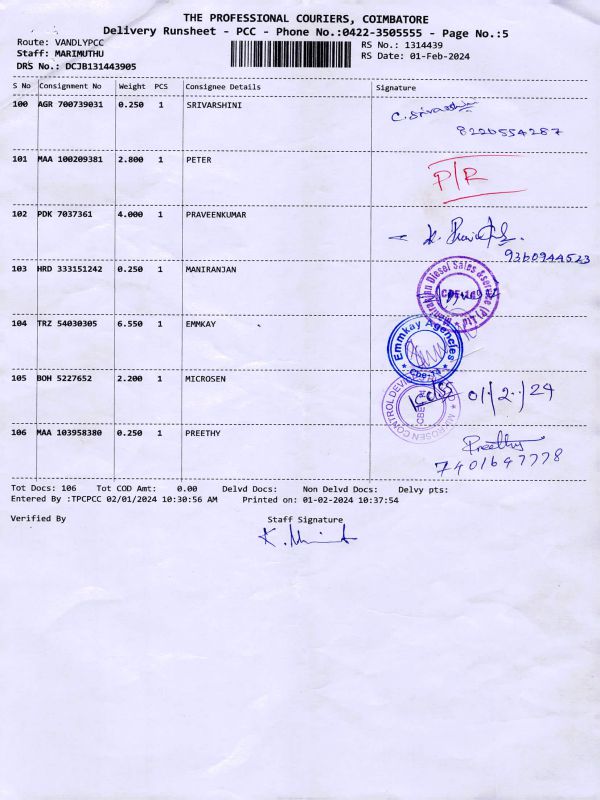 THE PROFESSIONAL COURIERS, COIMBATORE
Delivery Runsheet - PCC - Phone No.:0422-3505555 - Page No.:5
Route: VANDLYPCC RS No.: 1314439
Staff: MARIMUTHU RS Date: 01-Feb-2024
DRS No.: DCJB131443905
S No Consignment No Weight PCS Consignee Details Signature
100 AGR 700739031 0.250 1 SRIVARSHINI C. Srivarshini
8220554287
101 MAA 100209381 2.800 1 PETER P/R
102 PDK 7037361 4.000 1 PRAVEENKUMAR
9360944523
103 HRD 333151242 0.250 1 MANIRANJAN Diesel Sales &
104 TRZ 54030305 6.550 1 EMMKAY Emmkay Agencies
105 BOH 5227652 2.200 1 MICROSEN MICROSEN CONTROL 01/2/24
106 MAA 103958380 0.250 1 PREETHY Preethy
7401647778
Tot Docs: 106 Tot COD Amt: 0.00 Delvd Docs: Non Delvd Docs: Delvy pts:
Entered By :TPCPCC 02/01/2024 10:30:56 AM Printed on: 01-02-2024 10:37:54
Verified By Staff Signature